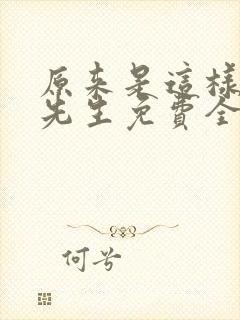 原来是這樣
先生免費全
何兮